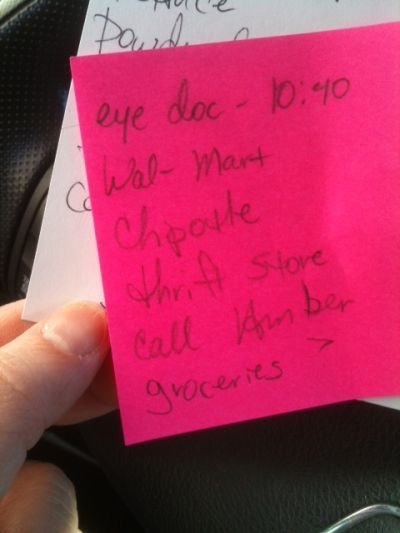 eye doc - 10:40
Wal-Mart
Chipotle
thrift store
call
groceries >